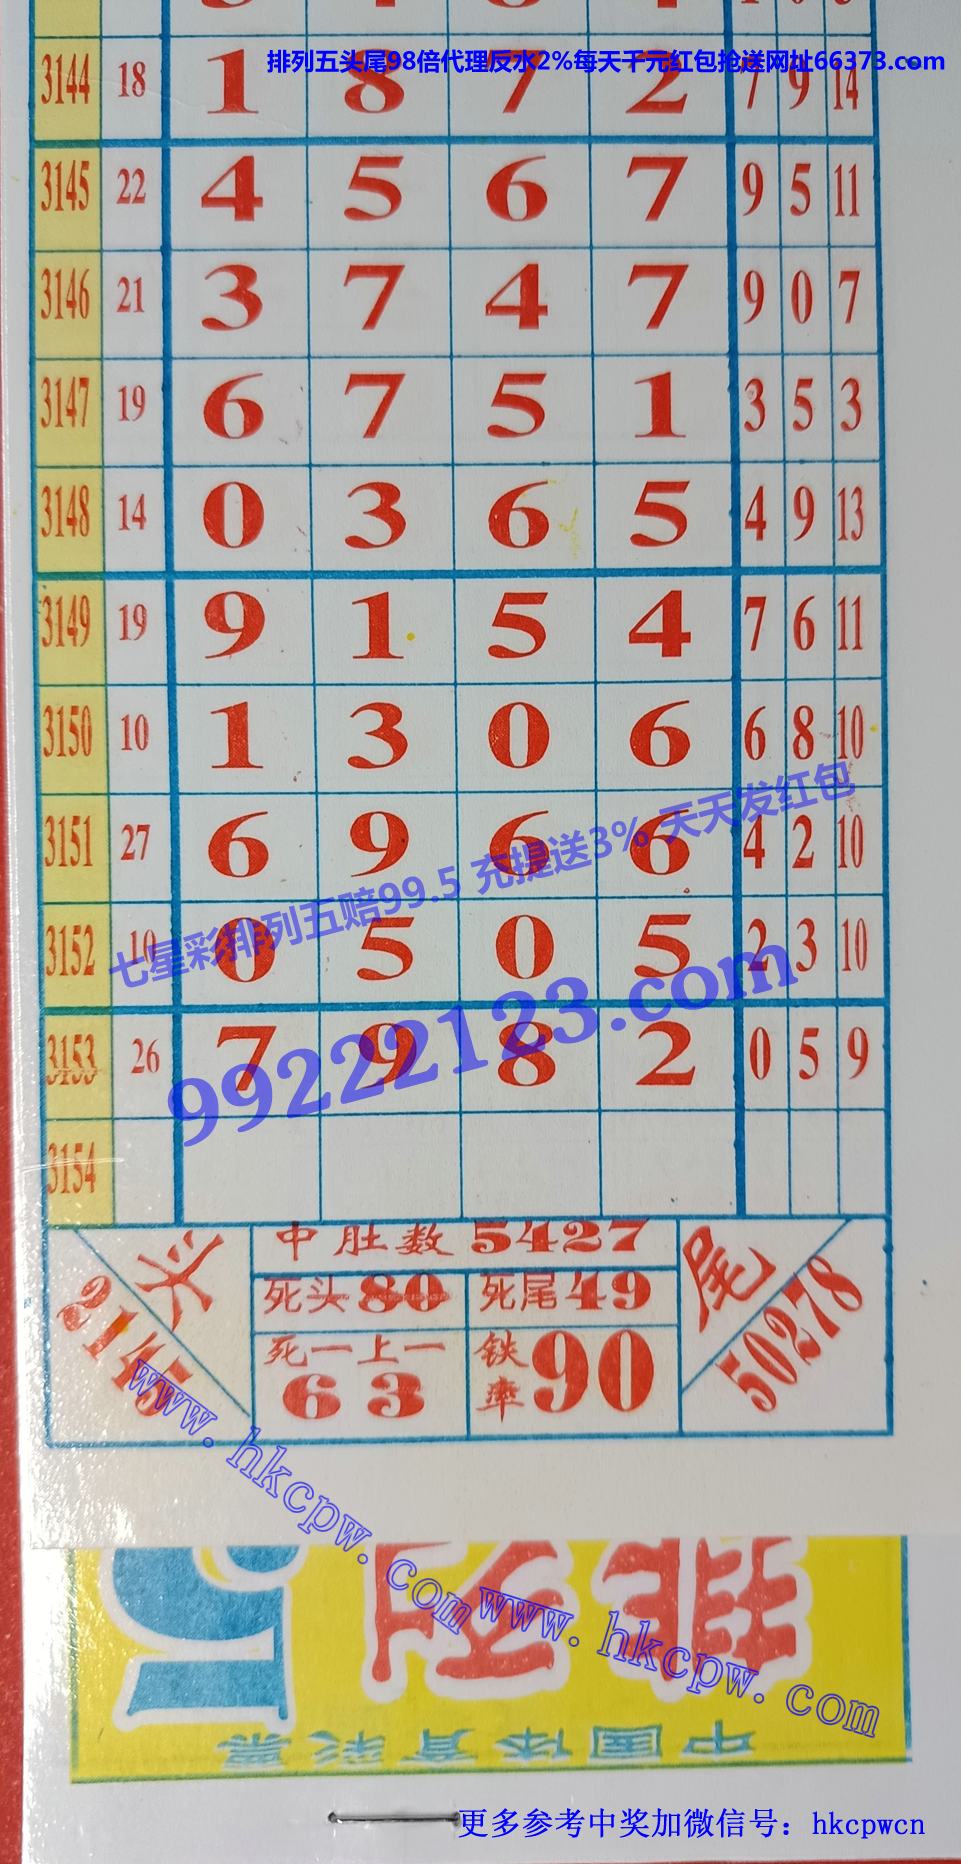 排列五头尾98倍代理反水2%每天千元红包抢送网址66373.com
3144 18 1 8 7 2 7 9 14
3145 22 4 5 6 7 9 5 11
3146 21 3 7 4 7 9 0 7
3147 19 6 7 5 1 3 5 3
3148 14 0 3 6 5 4 9 13
3149 19 9 1 5 4 7 6 11
3150 10 1 3 0 6 6 8 10
3151 27 6 9 6 6 4 2 10
七星彩排列五赔99.5 充提送3% 天天发红包
3152 10 0 5 0 5 2 3 10
99222123.com
3153 26 7 9 8 2 0 5 9
3154
头
2145
中肚数 5427
死头80
死尾49
死一上一
63
铁率90
尾
50278
www.hkcpw.com
www.hkcpw.com
排列5
中国体育彩票
更多参考中奖加微信号：hkcpwcn